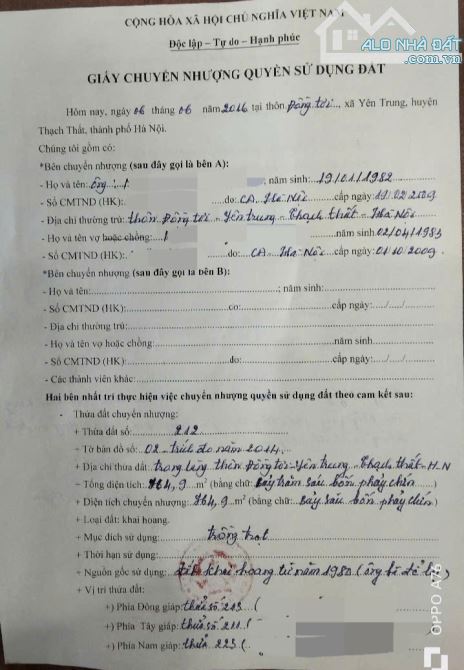 CỘNG HÒA XÃ HỘI CHỦ NGHĨA VIỆT NAM
Độc lập – Tự do – Hạnh phúc
ALO NHÀ ĐẤT
.com.vn
GIẤY CHUYỂN NHƯỢNG QUYỀN SỬ DỤNG ĐẤT
Hôm nay, ngày 06 tháng 06 năm 2016 tại thôn Đồng tơi, xã Yên Trung, huyện
Thạch Thất, thành phố Hà Nội.
Chúng tôi gồm có:
*Bên chuyển nhượng (sau đây gọi là bên A):
- Họ và tên: ông , năm sinh: 19/01/1982
- Số CMTND (HK): do: CA Hà Nội cấp ngày: 19/02/2009
- Địa chỉ thường trú: thôn Đồng tơi - Yên trung - Thạch thất - Hà Nội
- Họ và tên vợ hoặc chồng: năm sinh 02/04/1983
- Số CMTND (HK): do: CA Hà Nội cấp ngày: 01/10/2009.
*Bên chuyển nhượng (sau đây gọi là bên B):
- Họ và tên: ; năm sinh:
- Số CMTND (HK): do: cấp ngày: / /
- Địa chỉ thường trú:
- Họ và tên vợ hoặc chồng: năm sinh
- Số CMTND (HK): do: cấp ngày: / /
- Các thành viên khác:
Hai bên nhất trí thực hiện việc chuyển nhượng quyền sử dụng đất theo cam kết sau:
- Thửa đất chuyển nhượng:
+ Thửa đất số: 212
+ Tờ bản đồ số: 02 - trích đo năm 2014.
+ Địa chỉ thửa đất: trong làng thôn Đồng tơi - Yên trung - Thạch thất - H-N
- Tổng diện tích: 764,9 m² (bằng chữ: Bảy trăm sáu bốn phảy chín )
+ Diện tích chuyển nhượng: 764,9 m² (bằng chữ: Bảy sáu bốn phảy chín )
+ Loại đất: khai hoang.
+ Mục đích sử dụng: trồng trọt
+ Thời hạn sử dụng:
+ Nguồn gốc sử dụng: đất khai hoang từ năm 1980 ( ông bà để lại )
+ Vị trí thửa đất:
+) Phía Đông giáp: thửa số 213 (
+) Phía Tây giáp: thửa số 211 (
+) Phía Nam giáp: thửa 223 (
OPPO A76